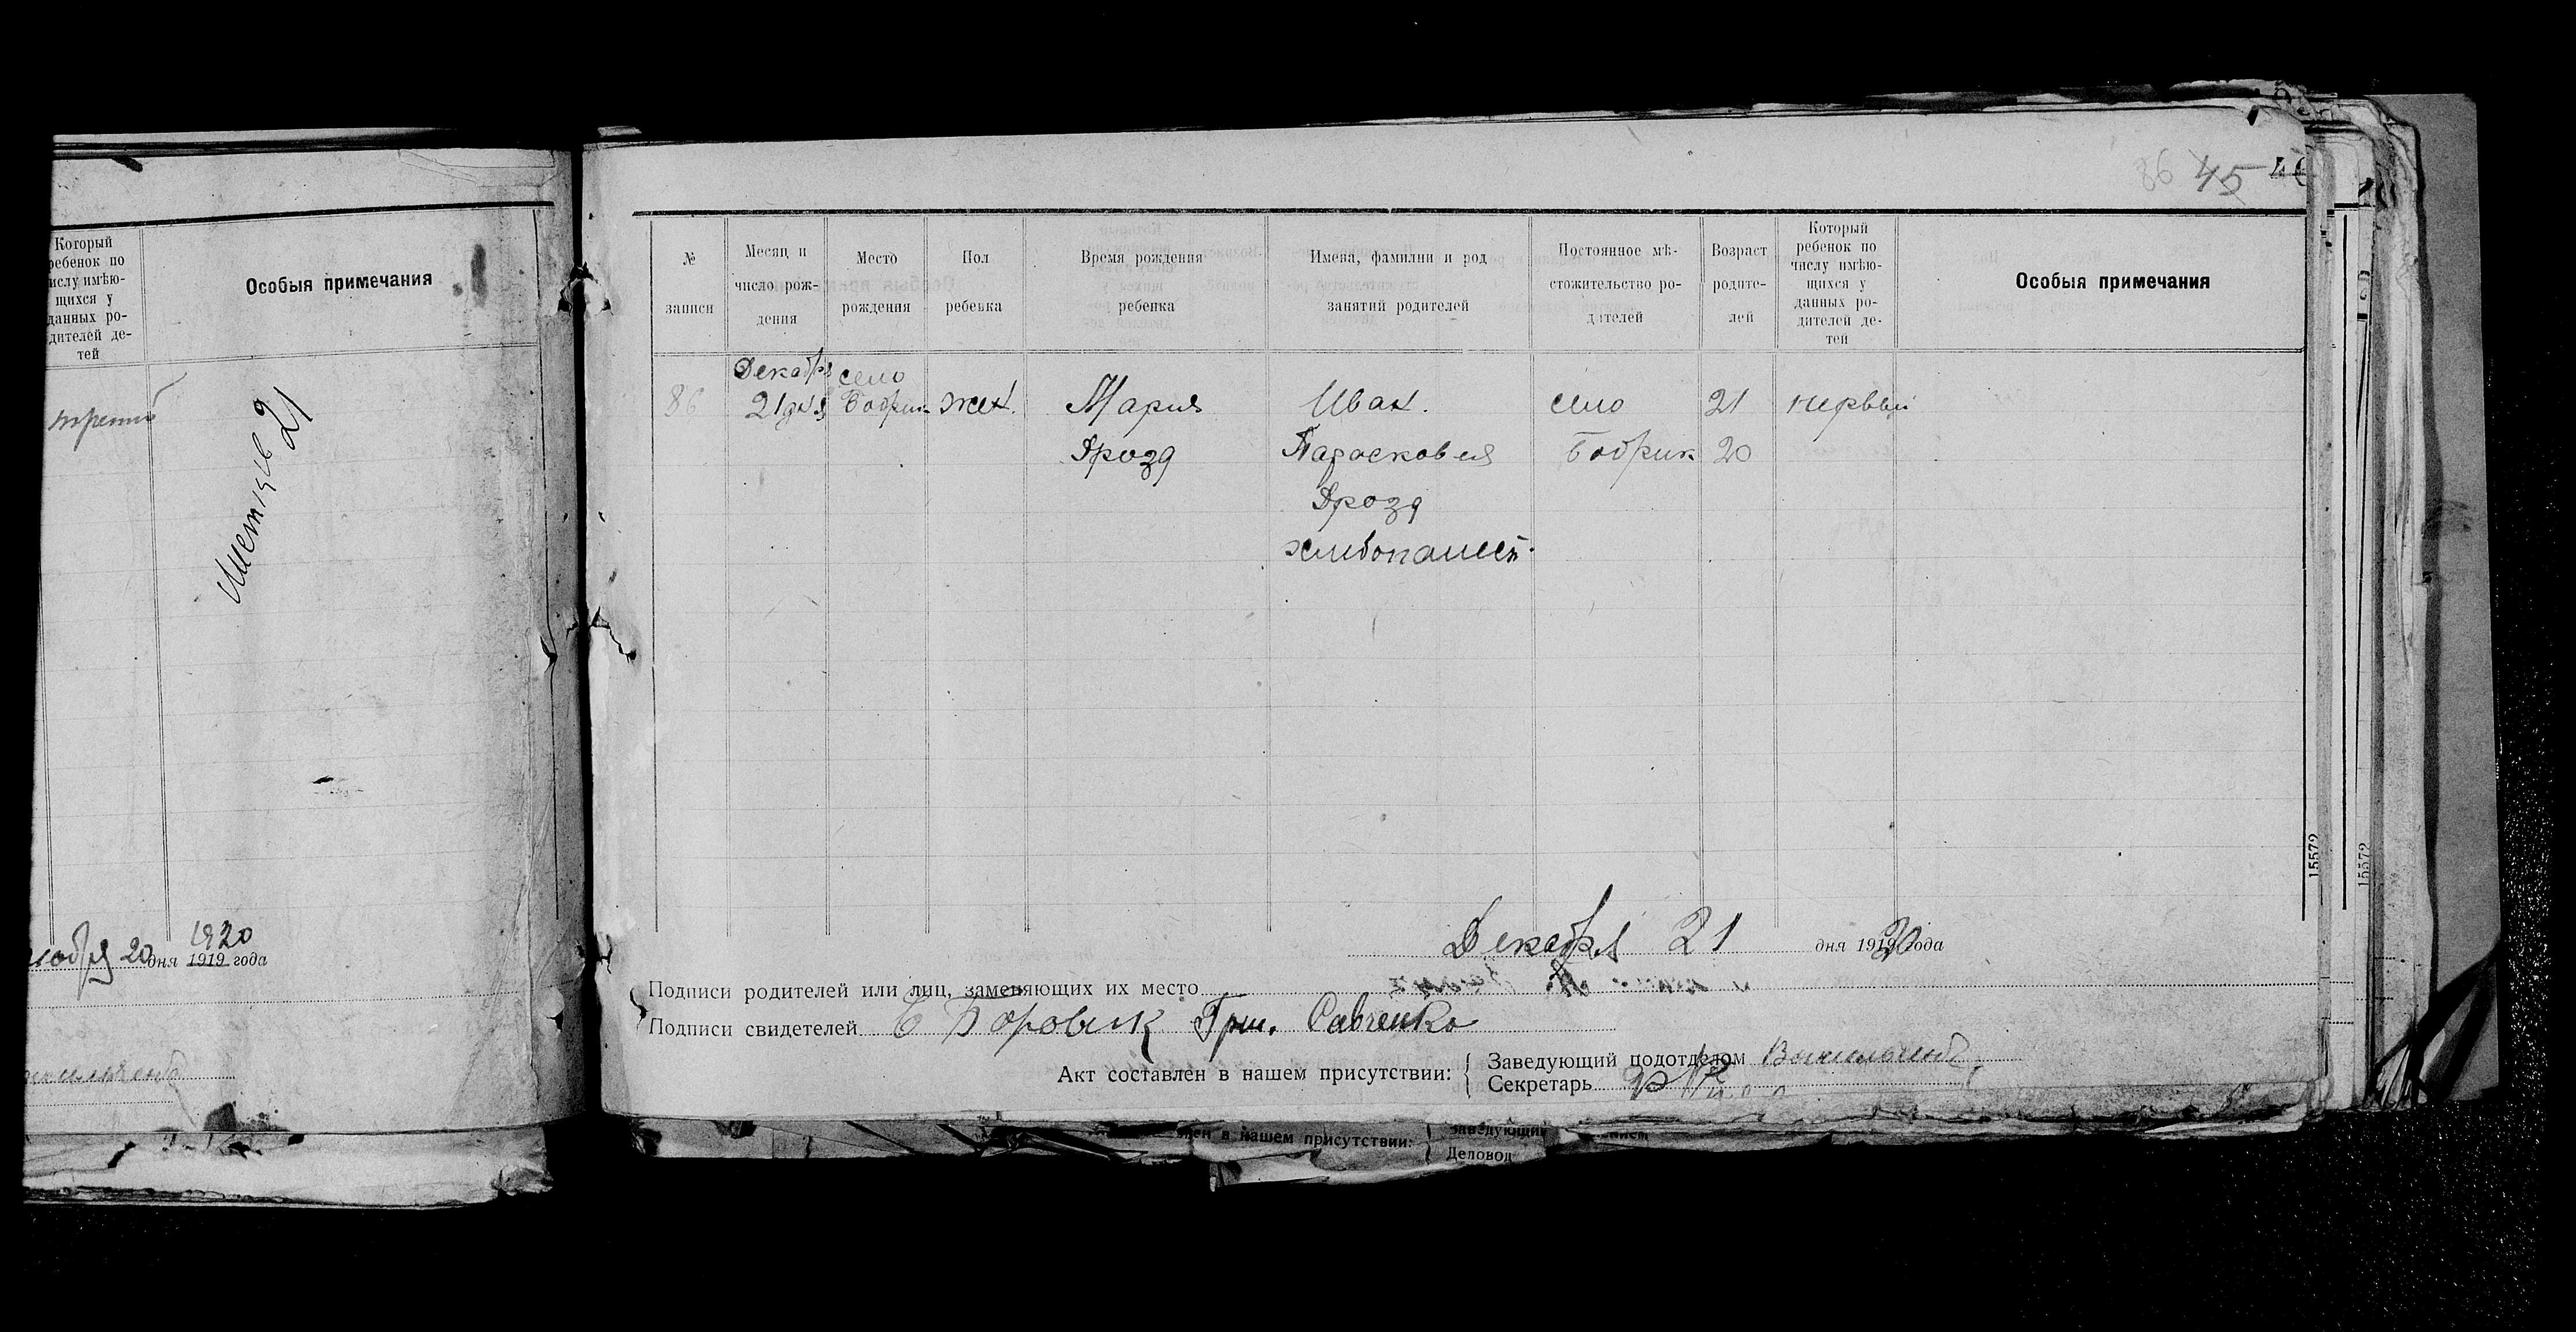 Который
ребенок по
числу имѣю-
щихся у
данных ро-
дителей де-
тей
Особыя примечания
третий
21
1920
20 дня 1919 года
86 45
№
записи
Месяц и
число рож-
дения
Место
рождения
Пол
ребенка
Время рождения
ребенка
Имена, фамилии и род
занятий родителей
Постоянное мѣ-
стожительство ро-
дителей
Возраст
родите-
лей
Который
ребенок по
числу имѣю-
щихся у
данных ро-
дителей де-
тей
Особыя примечания
Декабря село
86 21 дня Бобрик жен. Мария Иван. село 21 первый
Дрозд Парасковия Бобрик 20
Дрозд
хлибопашец
Декабря 21 дня 1919 20 года
Подписи родителей или лиц, заменяющих их место
Подписи свидетелей С Боровик Гри. Савченко
Акт составлен в нашем присутствии:
Заведующий подотделом
Секретарь
15572
15572
лен в нашем присутствии:
Заведующий
Деловод